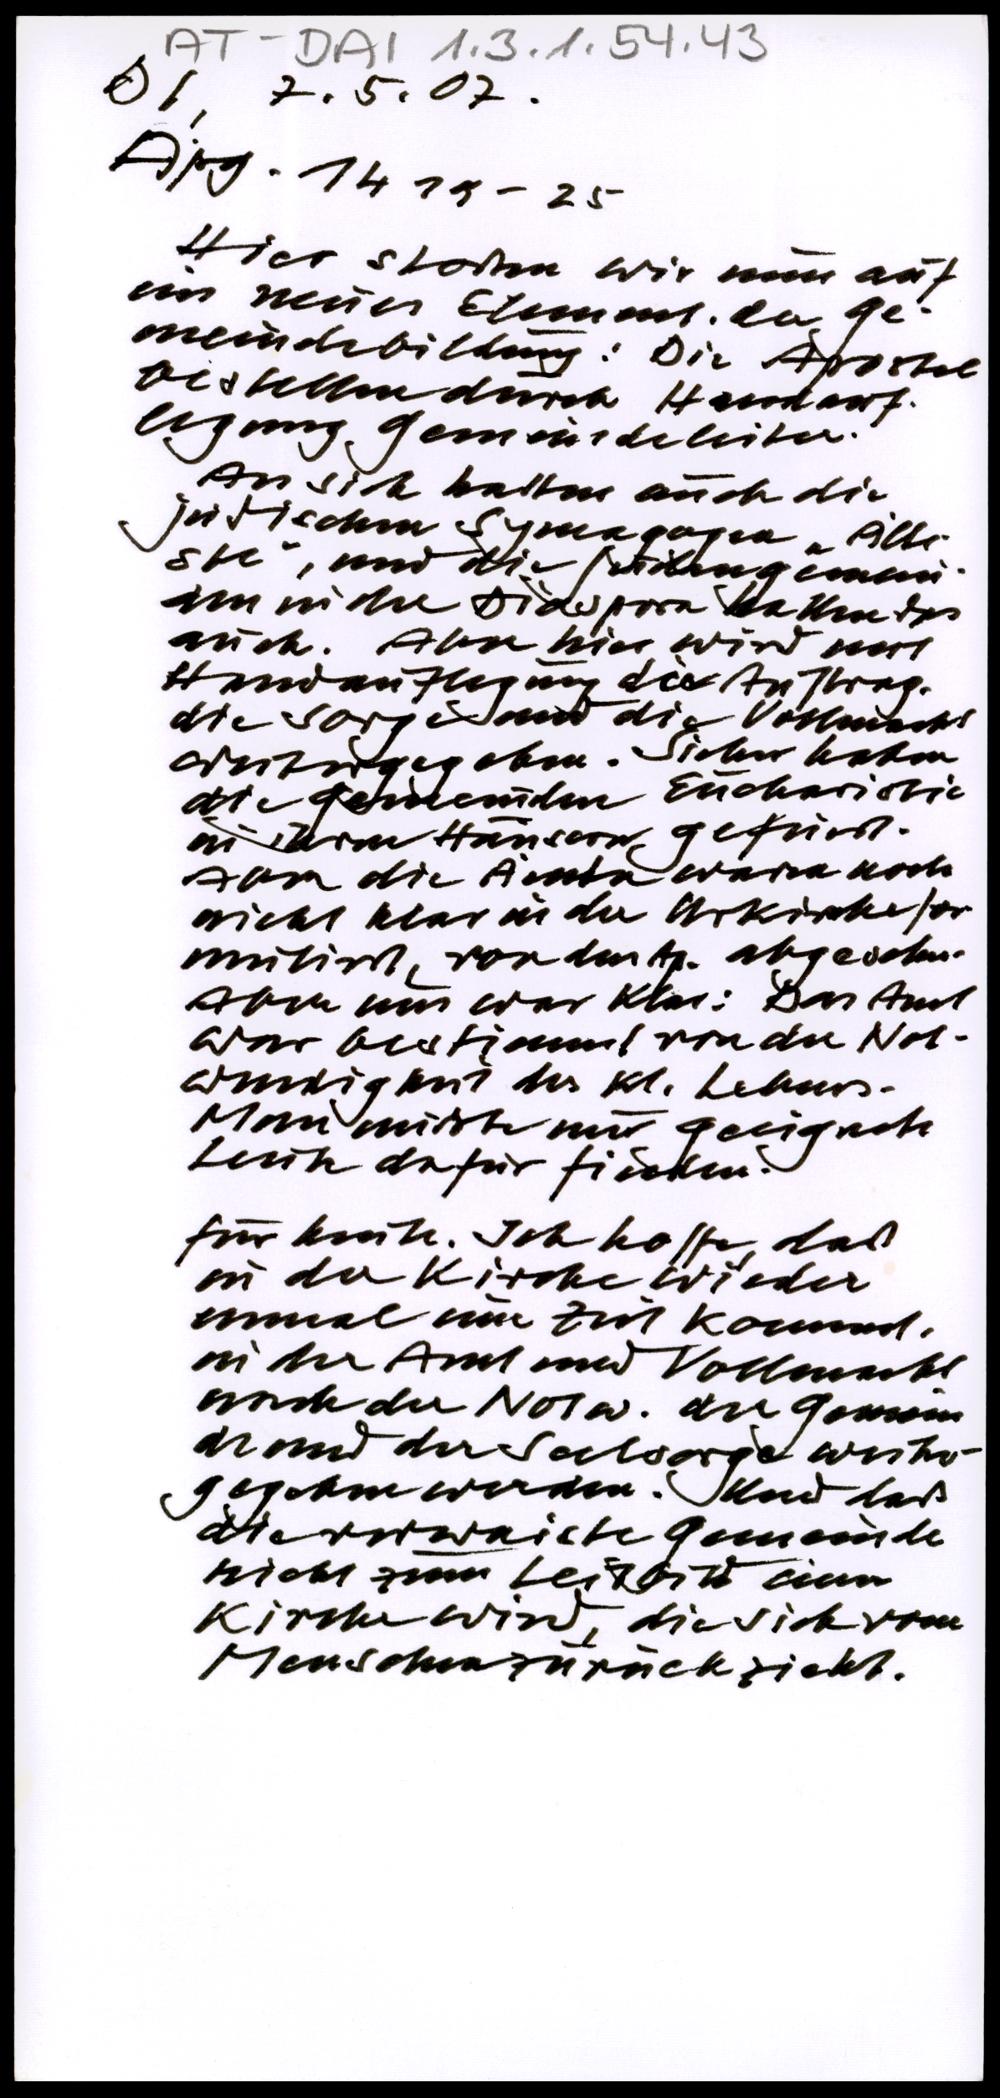 AT-DAI 1.3.1.54.43
Di, 7.5.07.
Apg. 14 19-25
Hier stoßen wir nun auf
ein neues Element der Ge-
meindebildung: Die Apostel
bestellen durch Handauf-
legung Gemeindeleiter.
An sich hatten auch die
jüdischen Synagogen „Älte-
ste", und die Judengemein-
den in der Diaspora hatten das
auch. Aber hier wird mit
Handauflegung die Auftrag,
die Sorge und die Vollmacht
weitergegeben. Sicher haben
die Gemeinden Eucharistie
in ihren Häusern gefeiert.
Aber die Ämter waren noch
nicht klar in der Urkirche for
muliert, von den Ap. abgesehen.
Aber nun war klar: Das Amt
war bestimmt von der Not-
wendigkeit des kl. Lebens.
Man mußte nur geeignete
Leute dafür finden.
für heute. Ich hoffe, daß
in der Kirche wieder
einmal eine Zeit kommt,
in der Amt und Vollmacht
nach der Notw. der Gemein
de und der Seelsorge weiter-
gegeben werden. Und daß
die verwaiste Gemeinde
nicht zum Leitbild einer
Kirche wird, die sich vom
Menschen zurückzieht.